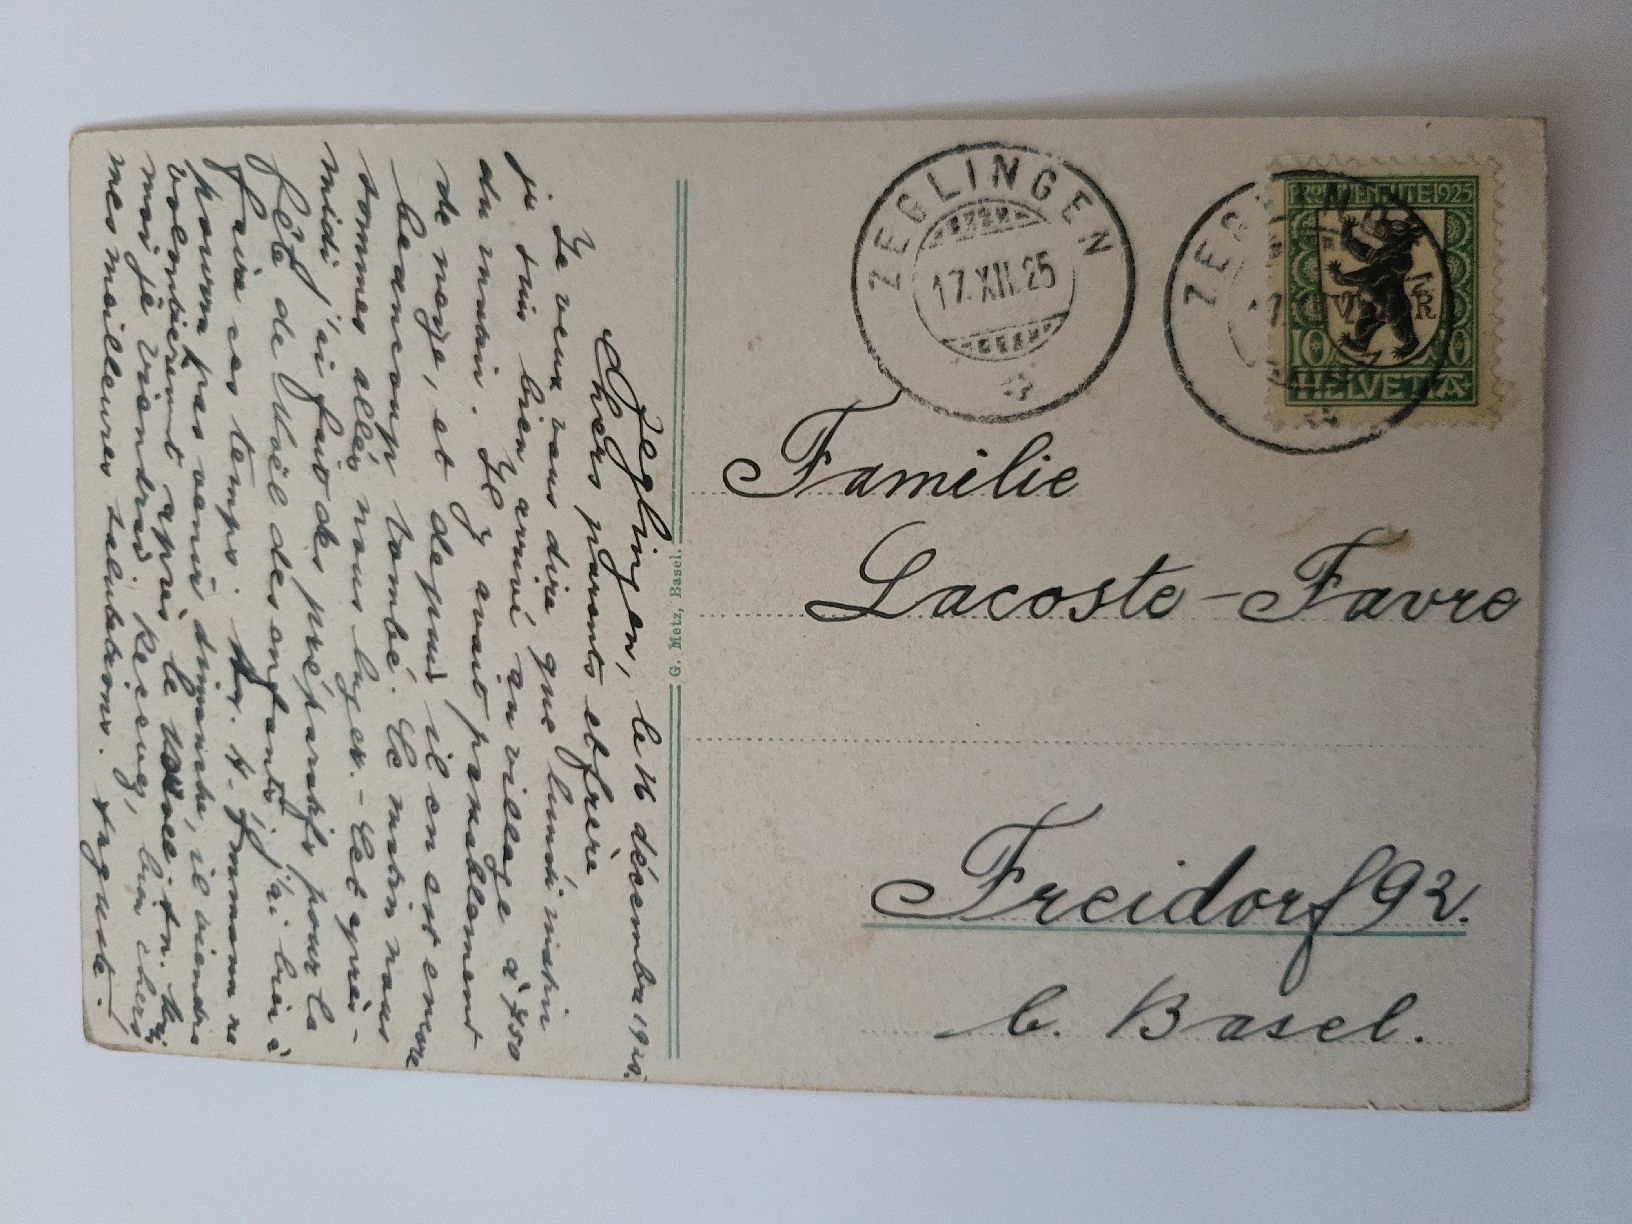 Zeglingen, le 16 décembre 1925.
Chers parents et frère
Je veux vous dire que lundi matin
je suis bien arrivé au village à 7.50
du matin. Il y avait passablement
de neige, et depuis il en est encore
beaucoup tombé. Ce matin nous
sommes allés nous luger. - Cet après-
midi j'ai fait des préparatifs pour la
fête de Noël des enfants, j'ai bien à
faire ces temps. maman ne
pourra pas venir dimanche, il viendra
volontiers après le
moi je viendrai bien chers
mes meilleures salutations. Auguste.
G. Metz, Basel.
ZEGLINGEN
17.XII.25
ZEGLINGEN
PRO JUVENTUTE 1925
10 10
HELVETIA
Familie
Lacoste-Favre
Freidorf 92.
b. Basel.